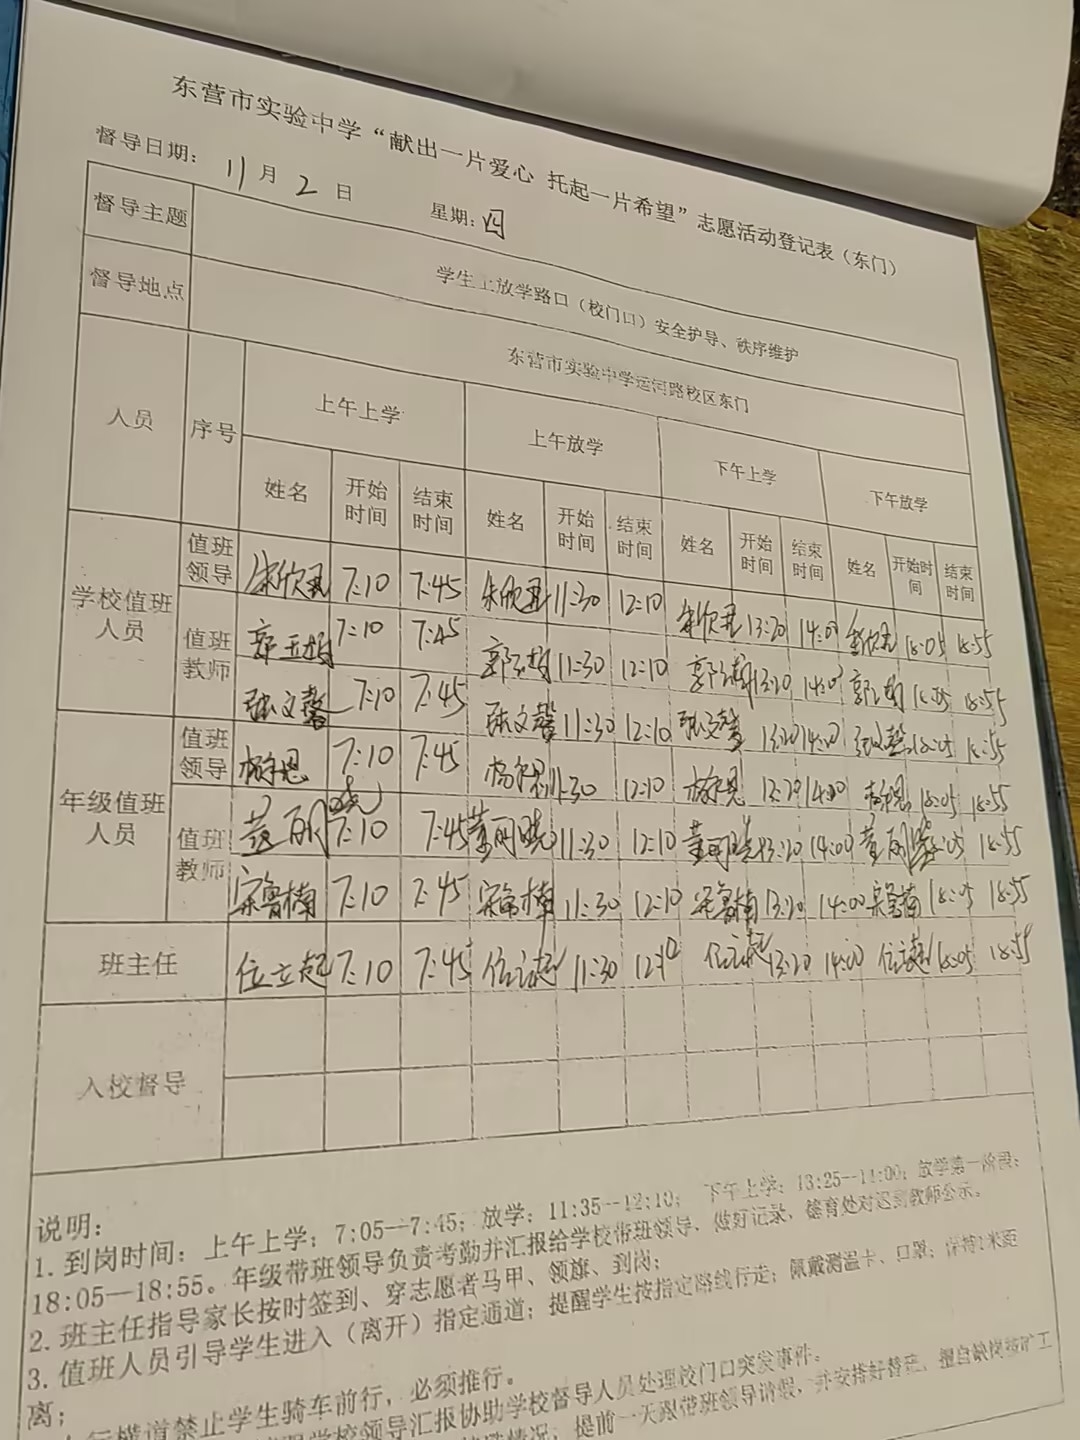 东营市实验中学“献出一片爱心 托起一片希望”志愿活动登记表（东门）
督导日期： 11月 2 日 星期：四
督导主题 学生上放学路口（校门口）安全护导、秩序维护
督导地点 东营市实验中学运河路校区东门
人员 序号 上午上学 上午放学 下午上学 下午放学
姓名 开始时间 结束时间 姓名 开始时间 结束时间 姓名 开始时间 结束时间 姓名 开始时间 结束时间
学校值班人员 值班领导 7:10 7:45 11:30 12:10 13:20 14:00 18:05 18:55
值班教师 7:10 7:45 11:30 12:10 13:20 14:00 18:05 18:55
张文馨 7:10 7:45 张文馨 11:30 12:10 张文馨 13:20 14:00 张文馨 18:05 18:55
年级值班人员 值班领导 7:10 7:45 11:30 12:10 13:20 14:00 18:05 18:55
值班教师 董丽晓 7:10 7:45 董丽晓 11:30 12:10 董丽晓 13:20 14:00 董丽晓 18:05 18:55
宋鲁楠 7:10 7:45 宋鲁楠 11:30 12:10 宋鲁楠 13:20 14:00 宋鲁楠 18:05 18:55
班主任 位立起 7:10 7:45 位立起 11:30 12:10 位立起 13:20 14:00 位立起 18:05 18:55
入校督导
说明：
1. 到岗时间：上午上学：7:05--7:45；放学：11:35--12:10；下午上学：13:25--14:00；放学第一阶段：
18:05--18:55。年级带班领导负责考勤并汇报给学校带班领导，做好记录，德育处对迟到教师公示。
2. 班主任指导家长按时签到、穿志愿者马甲、领旗、到岗；
3. 值班人员引导学生进入（离开）指定通道；提醒学生按指定路线行走；佩戴测温卡、口罩；保持1米距
离；
行横道禁止学生骑车前行，必须推行。
学校领导汇报协助学校督导人员处理校门口突发事件。
情况，提前一天跟带班领导请假，并安排好替班，擅自缺岗按旷工